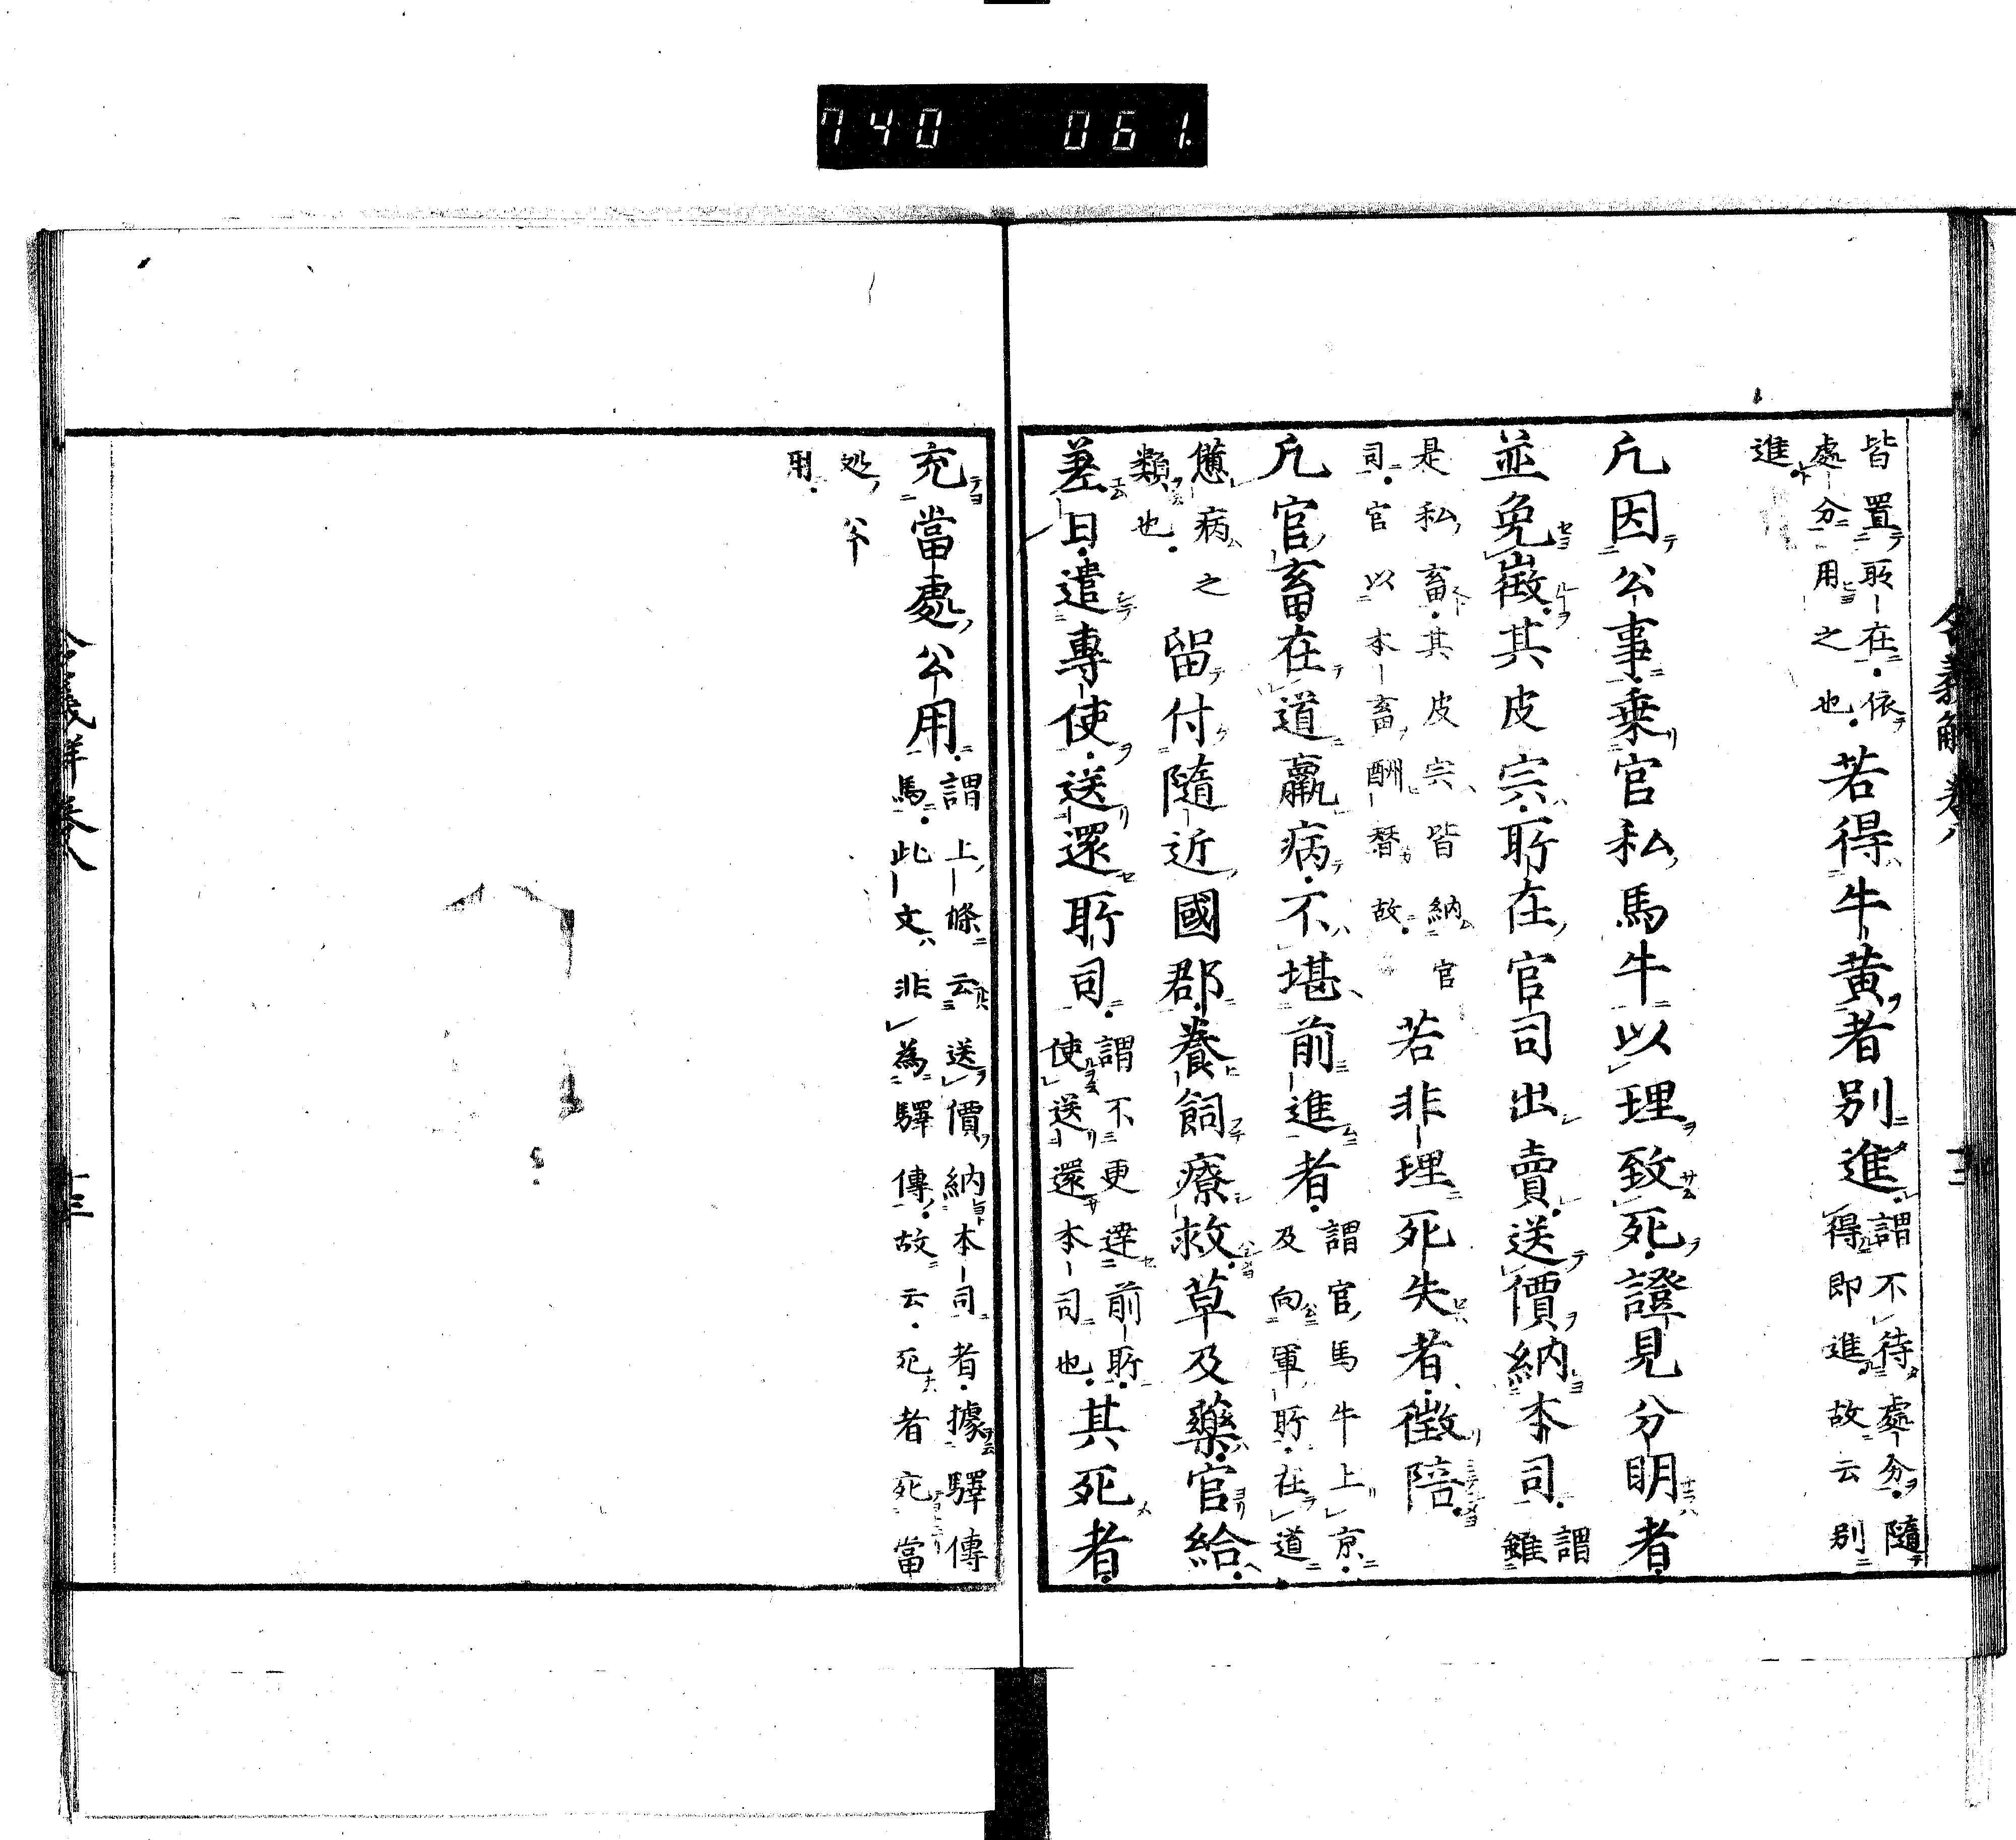 740 061.
皆置所在依
處分用之也
若得牛黄者別進
謂不待處分隨
得即進故云別
進
凡因公事乗官私馬牛以理致死證見分明者
並免徴其皮宍所在官司出賣送價納本司
謂
雖
是私畜其皮宍皆納官
司官以本畜酬替故
若非理死失者徴陪
凡官畜在道羸病不堪前進者
謂官馬牛上京
及向軍所在道
憊病之
類也
留付隨近國郡養飼療救草及藥官給
差日遣專使送還所司
謂不更遣前所
使送還本司也
其死者
充當處公用
謂上條云送價納本司者據驛傳
馬此文非為驛傳故云死者充當
処公
用
令義解卷八
十三